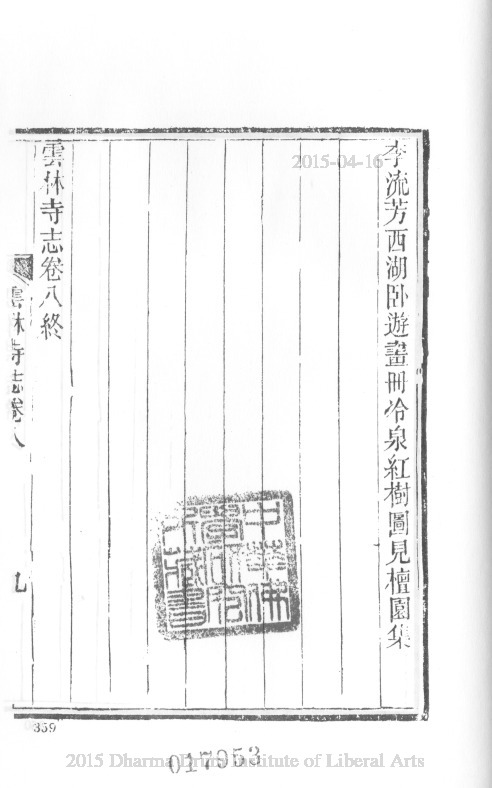 2015-04-16
李流芳西湖卧遊畫冊冷泉紅樹圖見檀園集
雲林寺志卷八終
雲林寺志卷八
九
中華佛學研究所藏書
359
017953
2015 Dharma Drum Institute of Liberal Arts